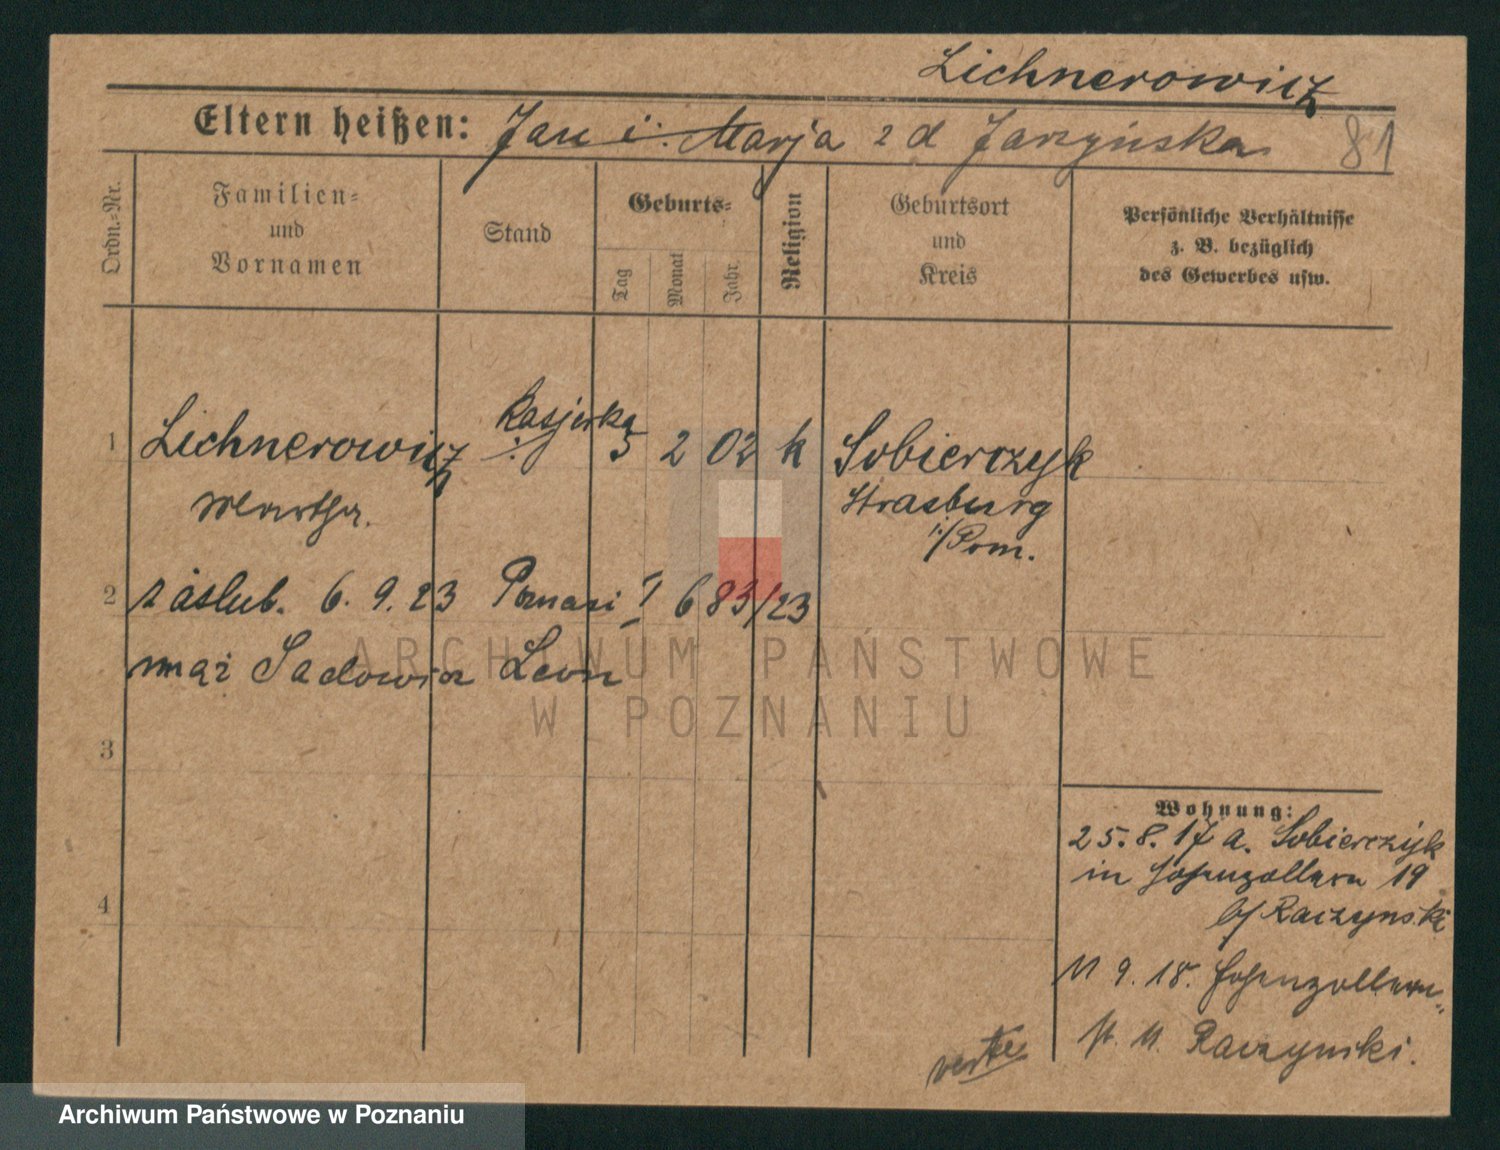 Lichnerowicz
Eltern heißen: Jan i Marja z d Jarzyńska 81
Ordn.-Nr.
Familien-
und
Vornamen
Stand
Geburts-
Tag
Monat
Jahr
Religion
Geburtsort
und
Kreis
Persönliche Verhältnisse
z. B. bezüglich
des Gewerbes usw.
1 Lichnerowicz Kasjerka 5 2 02 k Sobierczyk
Martha. Strasburg
i/Pom.
2 zaslub. 6. 9. 23 Poznań I 683/23
mąż Sadowicz Leon
3
4
Wohnung:
25. 8. 17 a. Sobierczyk
in Hohenzollern 19
b/ Raczynski
11 9. 18. Hohenzollern-
st. 11. Raczynski.
verte
ARCHIWUM PAŃSTWOWE
W POZNANIU
Archiwum Państwowe w Poznaniu